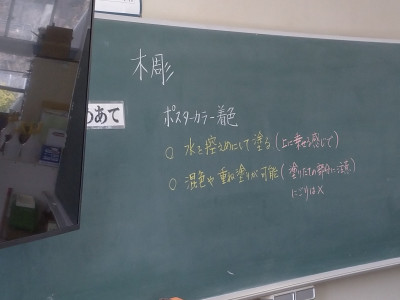 木彫
めあて
ポスターカラー着色
○ 水を控えめにして塗る(上に乗せる感じで)
○ 混色や重ね塗りが可能(塗りたての部分に注意
にごりは×